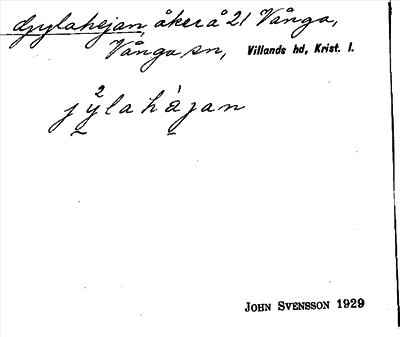 Gylahejan, åker å 21 Vånga,
Vånga sn, Villands hd, Krist. l.
jẙ̰²lahȧ̰jan
JOHN SVENSSON 1929